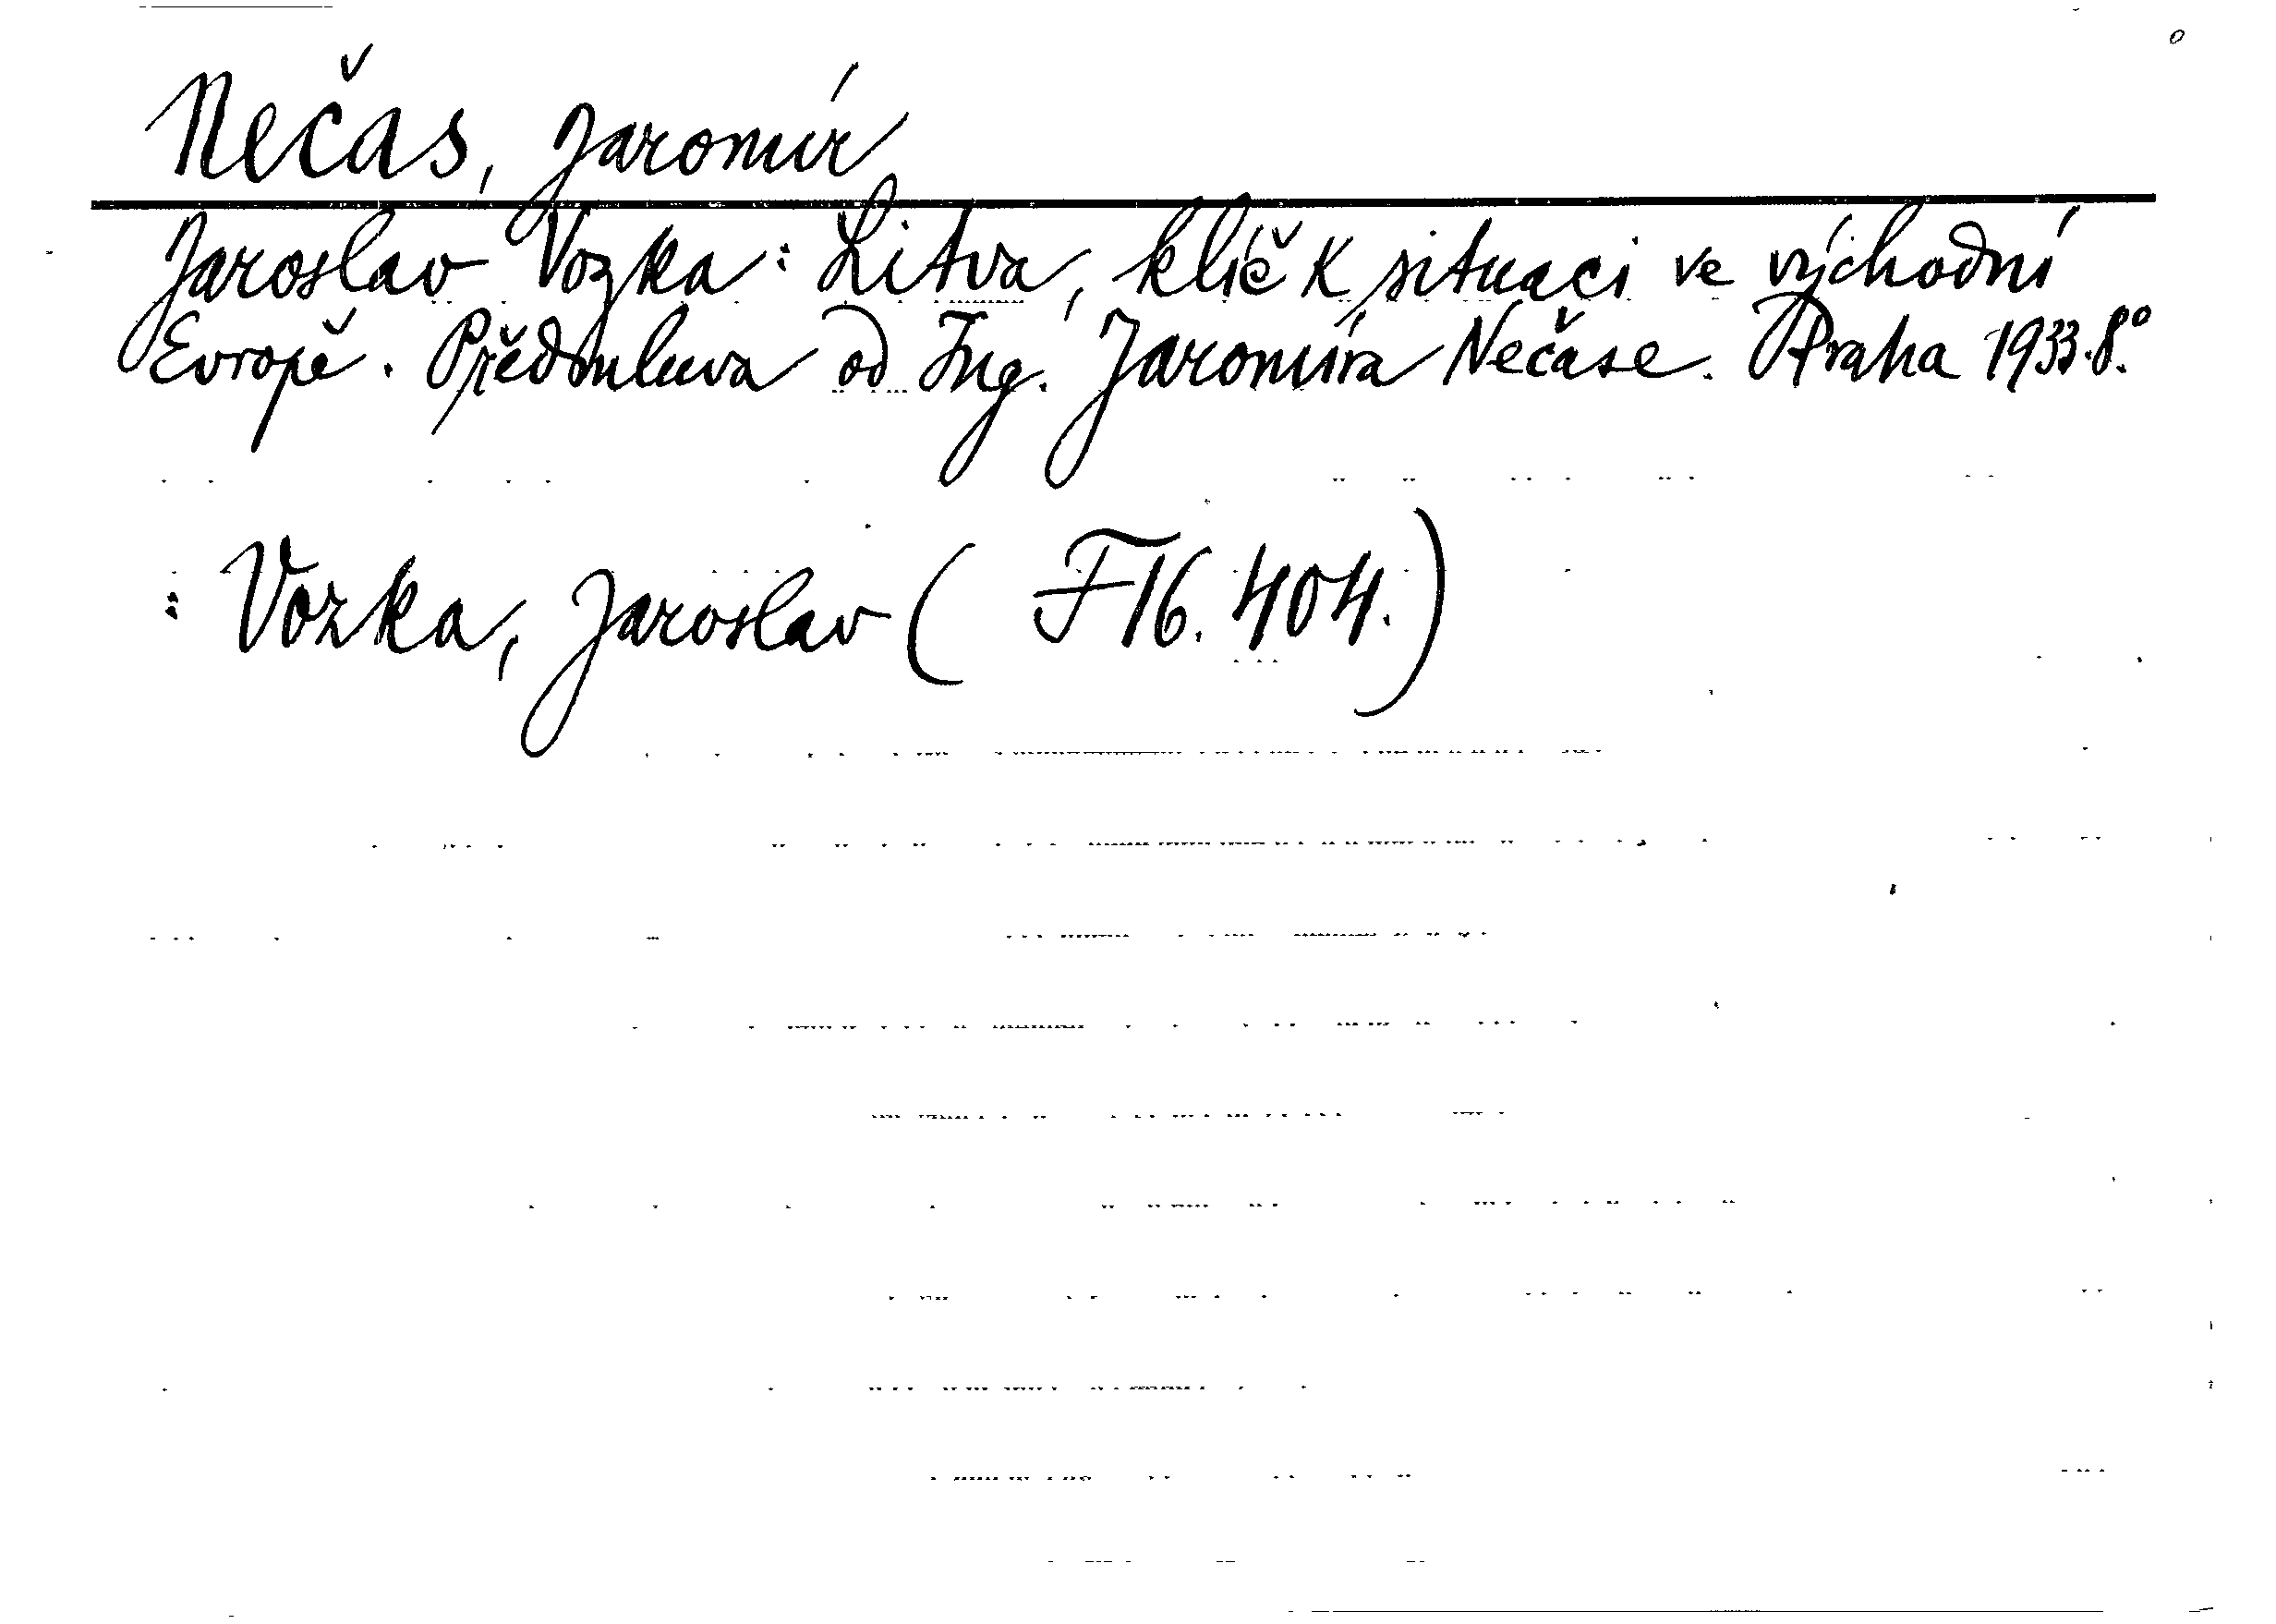 Nečas, Jaromír
Jaroslav Vozka: Litva, klíč k situaci ve východní
Evropě. Předmluva od Ing. Jaromíra Nečase. Praha 1933. 8°.
: Vozka, Jaroslav ( F 16. 404.)